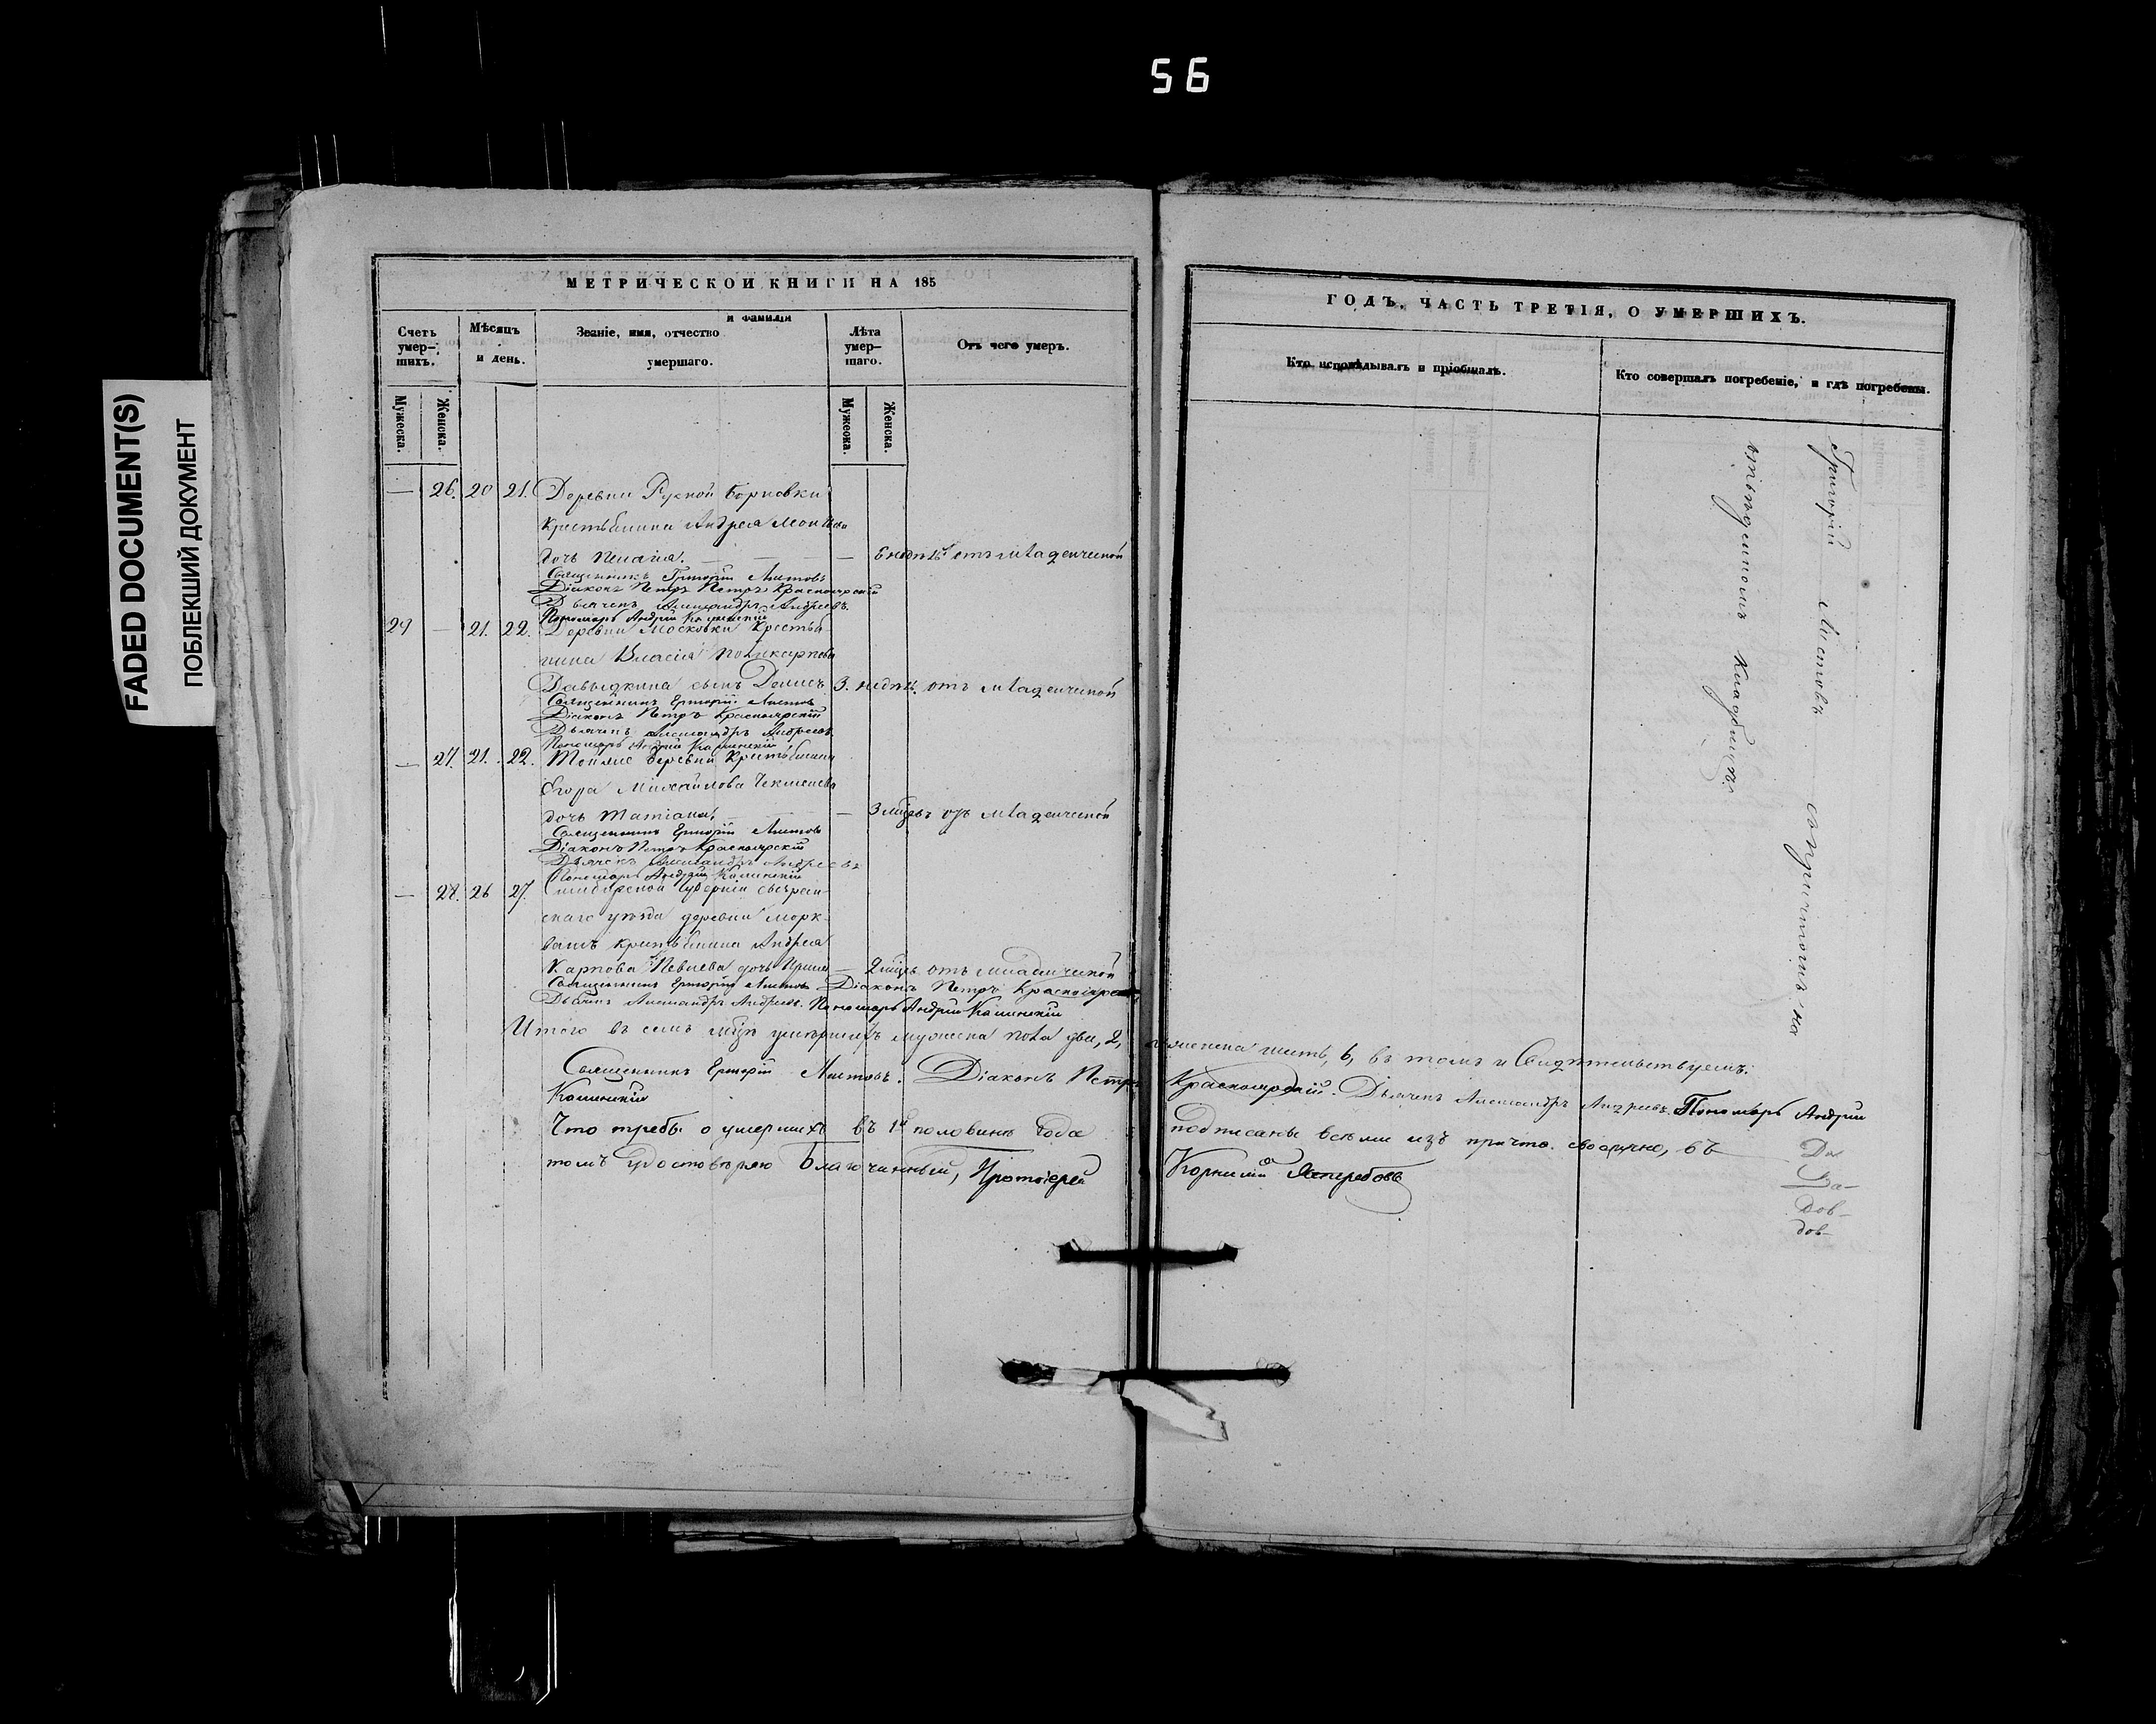 56
FADED DOCUMENT(S)
ПОБЛЕКШИЙ ДОКУМЕНТ
МЕТРИЧЕСКОЙ КНИГИ НА 185
Счетъ умер-шихъ.
Мѣсяцъ и день.
Званіе, имя, отчество и фамилія умершаго.
Лѣта умер-шаго.
Отъ чего умеръ.
Мужеска.
Женска.
Мужеска.
Женска.
— 26. 20 21. Деревни Борковки
крестьянина Андрея
дочь — — 6 недѣль отъ младенческой
Священникъ Григорій Листовъ
Діаконъ Петръ Красноярскій
Дьячекъ Александръ Андреевъ.
Пономарь Андрей Калинскій
29 — 21. 22. Деревни Московки крестья-
нина Власія Поликарпова
Давыдкина сынъ Денисъ 3. недѣль. отъ младенческой
Священникъ Григорій Листовъ
Діаконъ Петръ Красноярскій
Дьячекъ Александръ Андреевъ.
Пономарь Андрей Калинскій
— 27. 21. 22. Тойже деревни крестьянина
Егора Михайлова
дочь Татіана. — — 3 мѣсяц. отъ младенческой
Священникъ Григорій Листовъ
Діаконъ Петръ Красноярскій
Дьячекъ Александръ Андреевъ
Пономарь Андрей Калинскій
— 28. 26 27. Симбирской губерніи
скаго уѣзда деревни Морк-
вашъ крестьянина Андрея
Карпова дочь — 2 мѣсяц. отъ младенческой
Священникъ Григорій Листовъ Діаконъ Петръ Красноярскій
Дьячекъ Александръ Андреевъ. Пономарь Андрей Калинскій
Итого въ семъ мѣсяцѣ умершихъ мужеска пола два, 2, женска шесть, 6, въ томъ и Свидѣтельствуемъ:
Священникъ Григорій Листовъ. Діаконъ Петръ Красноярскій. Дьячекъ Александръ Андреевъ. Пономарь Андрей
Калинскій
Что требы о умершихъ въ 1й половинѣ года подписаны всѣми изъ причта своеручно, въ
томъ удостовѣряю Благочинный, Протоіерей Корнилій
ГОДЪ, ЧАСТЬ ТРЕТІЯ, О УМЕРШИХЪ.
Кто исповѣдывалъ и пріобщалъ.
Кто совершалъ погребеніе, и гдѣ погребены.
Григорій Листовъ съ причтомъ на
кладбищѣ.
Да
Да-
Дов-
дов-